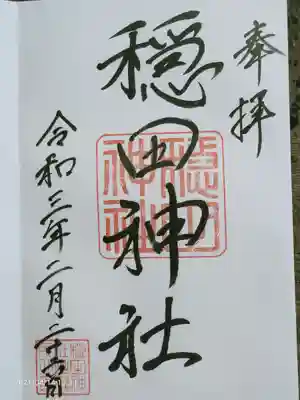 奉拝
穏田神社
穏田神社
令和三年二月二十六日